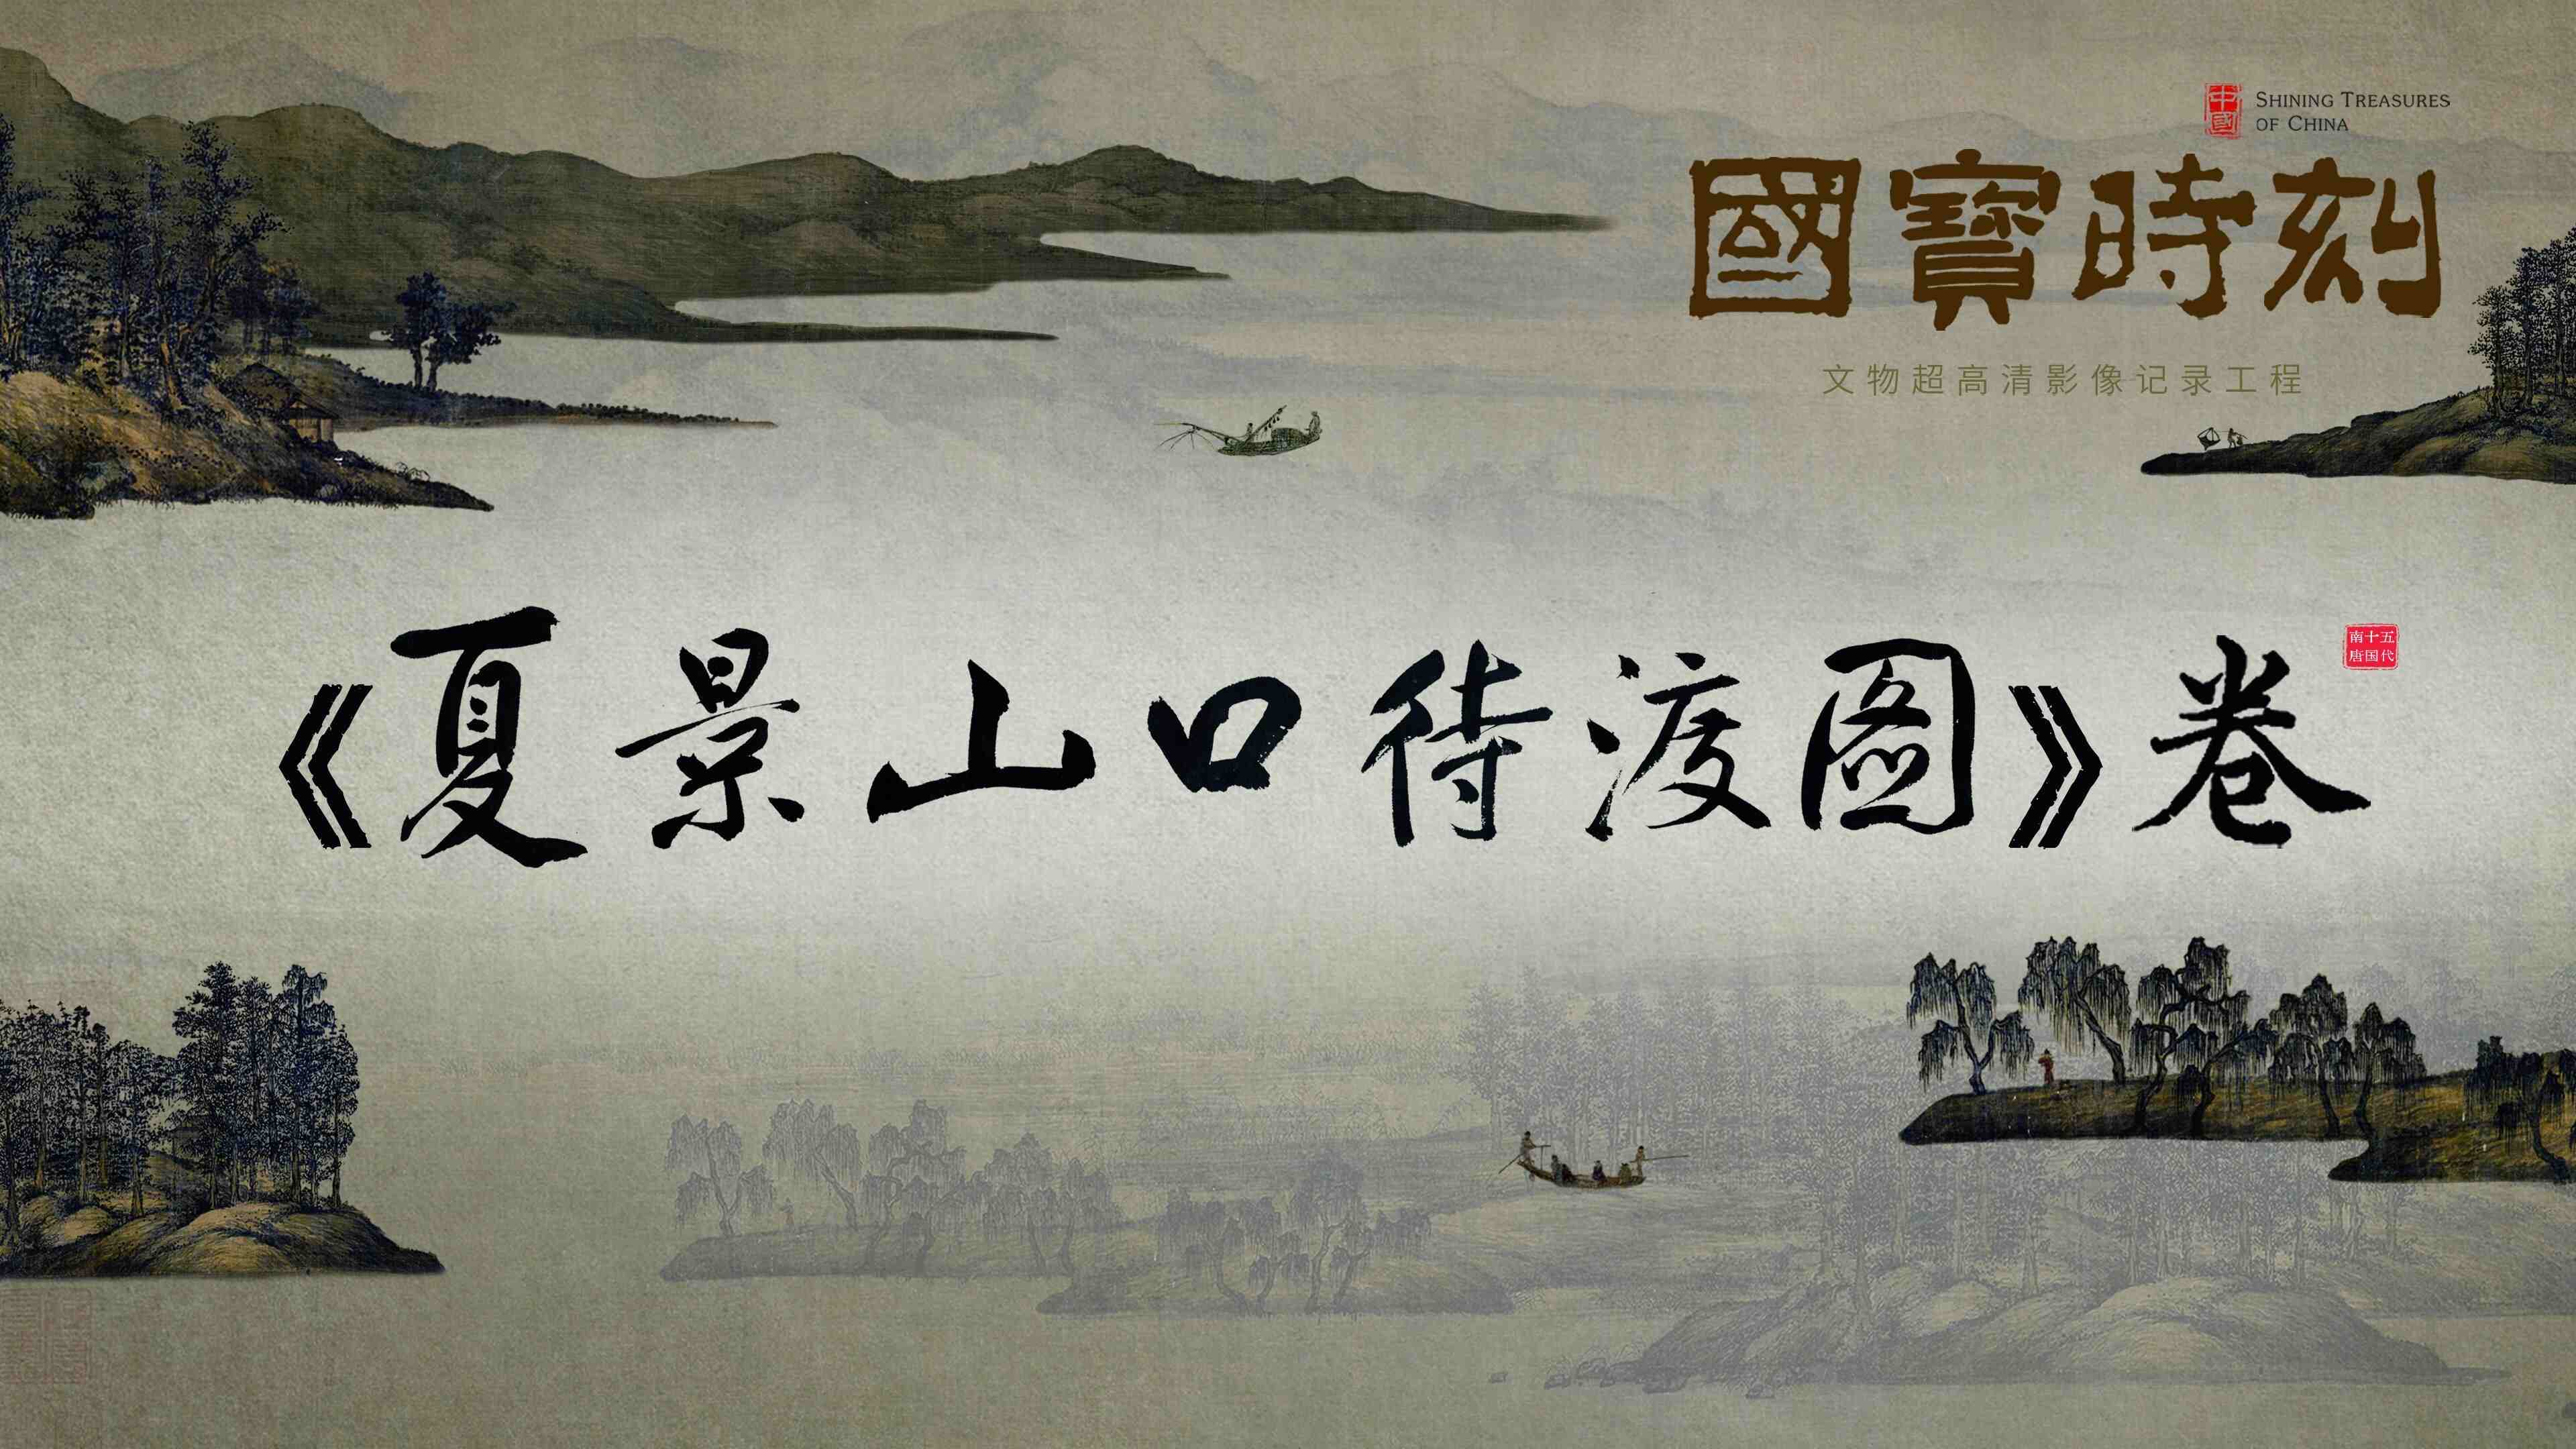 中國
SHINING TREASURES
OF CHINA
國寶時刻
文物超高清影像记录工程
《夏景山口待渡圖》卷
五代
十国
南唐